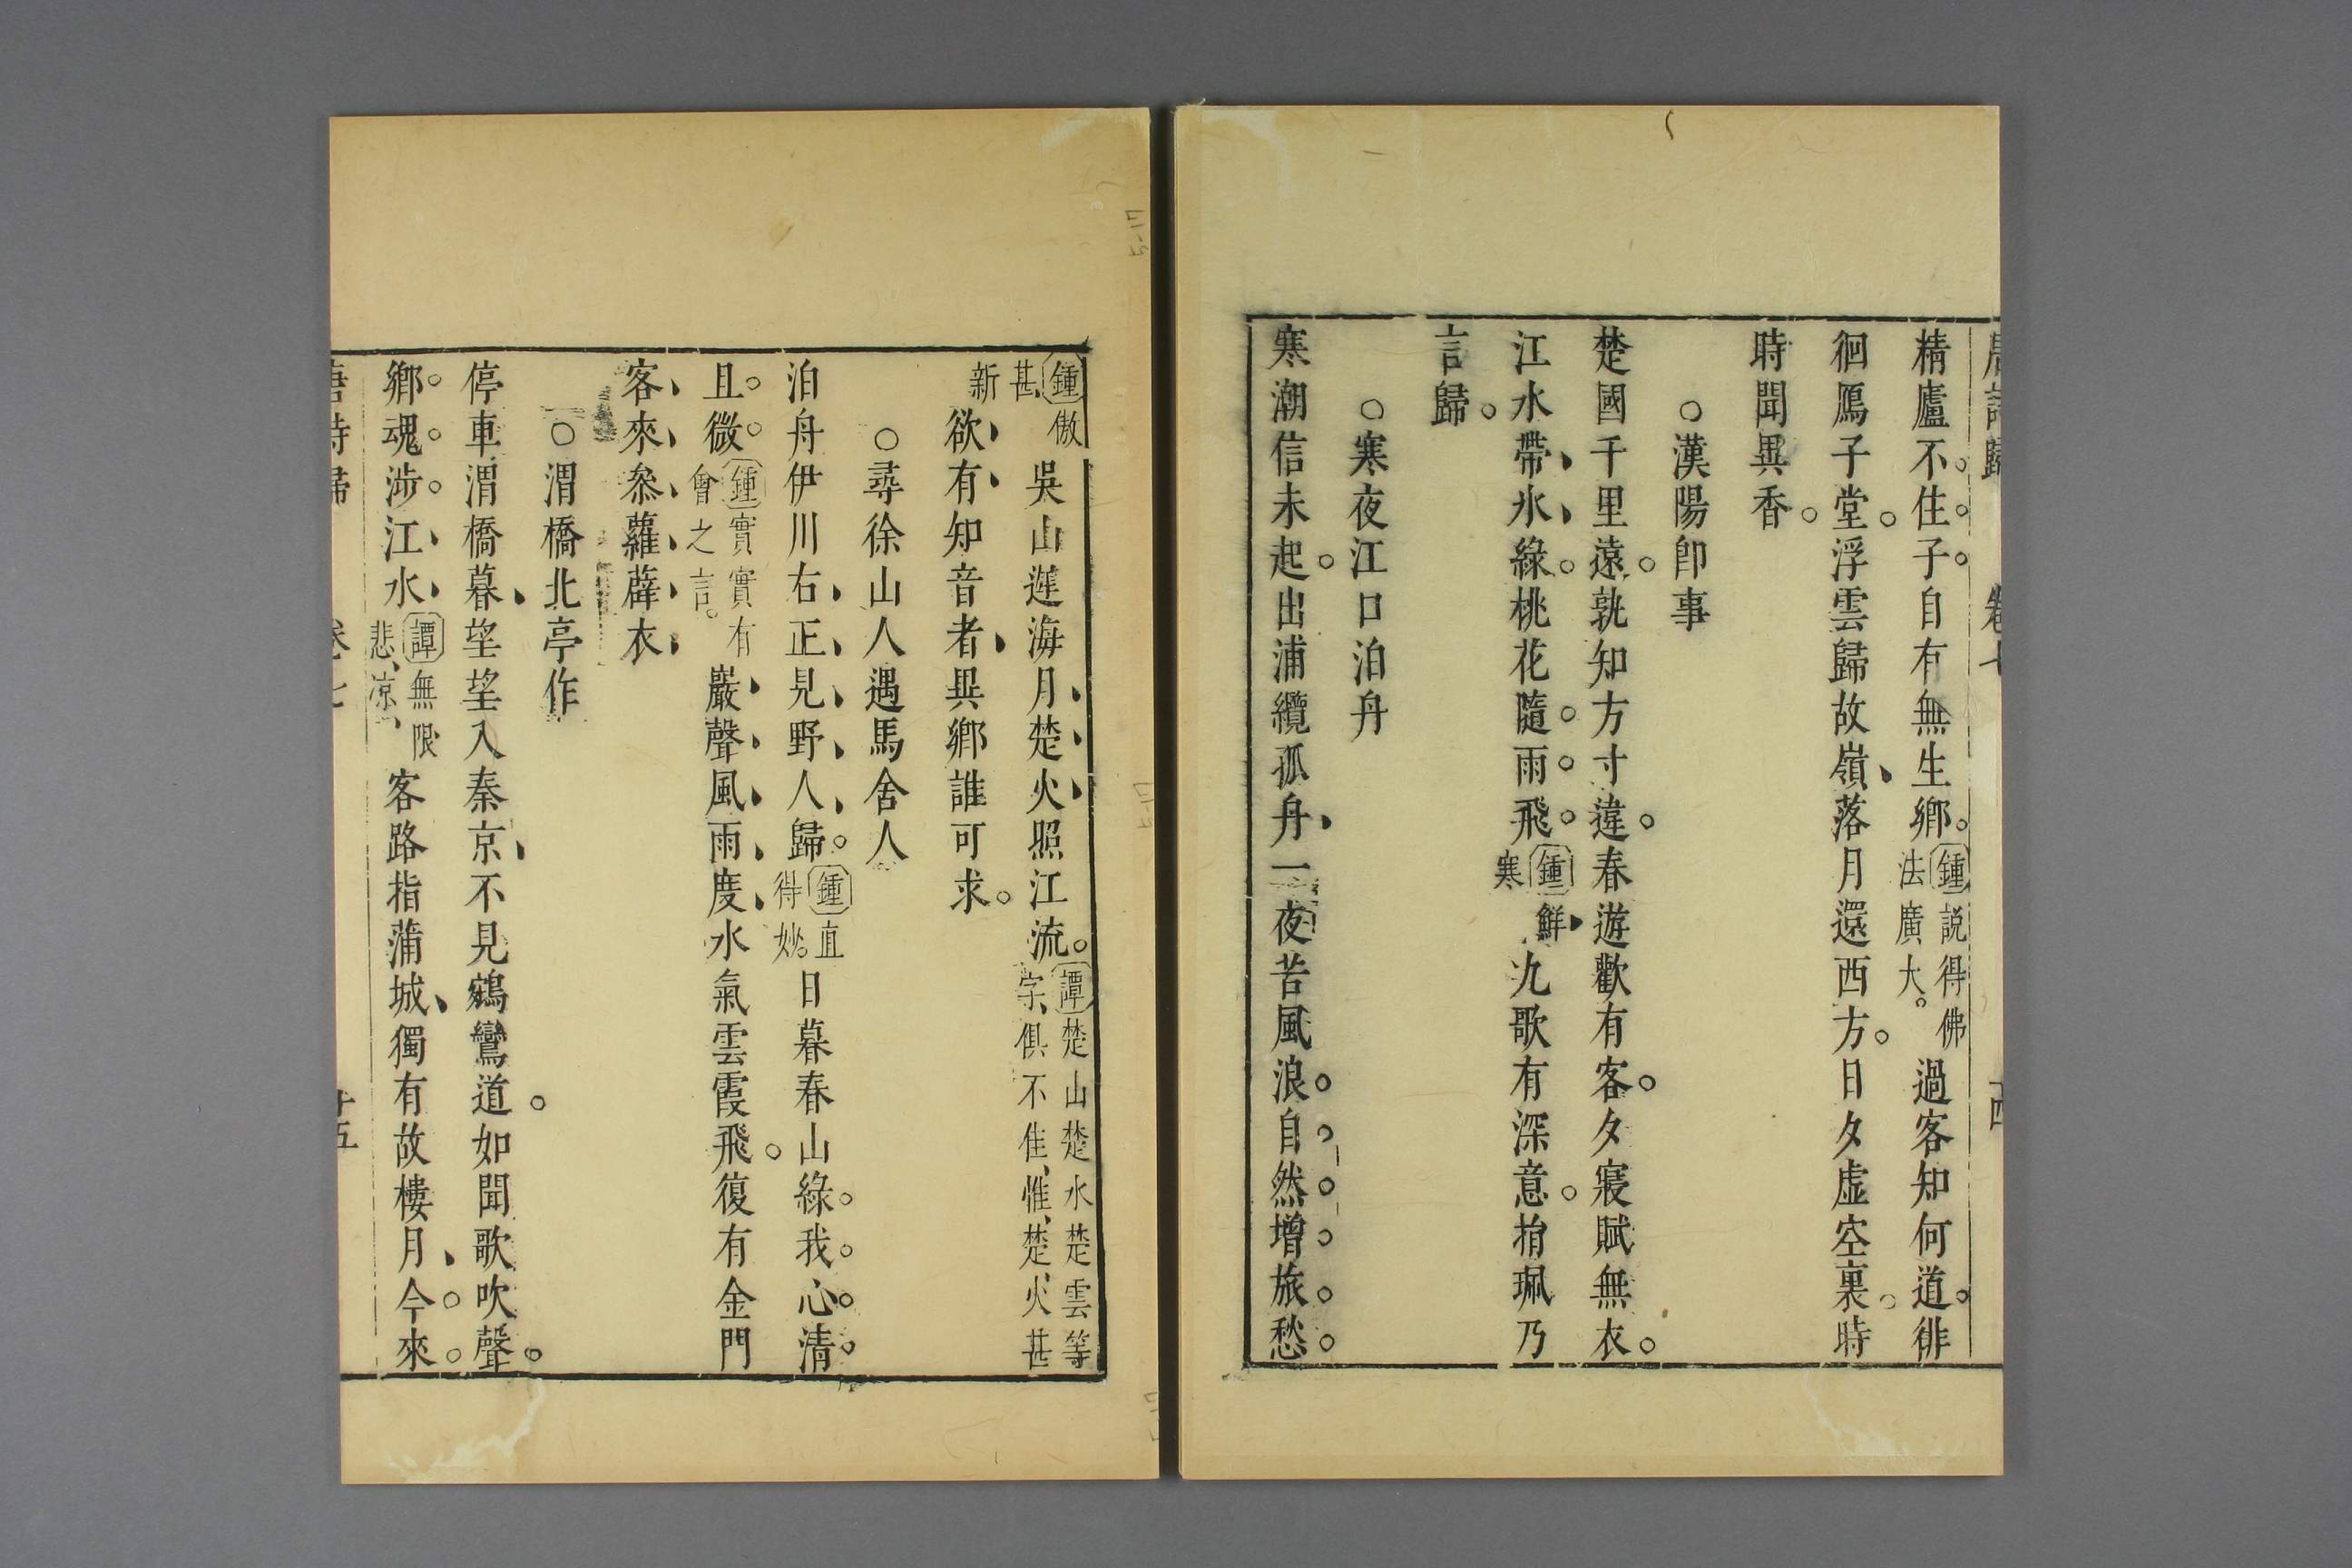 唐詩歸 卷七 十四
精廬不住子自有無生鄉鍾說得佛法廣大。過客知何道徘
徊鴈子堂浮雲歸故嶺落月還西方日夕虛空裏時
時聞異香
○漢陽卽事
楚國千里遠孰知方寸違春遊歡有客夕寢賦無衣
江水帶氷綠桃花隨雨飛鍾鮮寒九歌有深意捐珮乃
言歸
○寒夜江口泊舟
寒潮信未起出浦纜孤舟一夜苦風浪自然增旅愁
吳山遲海月楚火照江流譚楚山楚水楚雲等字、俱不佳、惟、楚、火甚
鍾傲甚新欲有知音者異鄉誰可求
○尋徐山人遇馬舍人
泊舟伊川右正見野人歸鍾直得妙。日暮春山綠我心清
且微鍾實實有會之言。巖聲風雨度水氣雲霞飛復有金門
客來叅蘿薜衣
○渭橋北亭作
停車渭橋暮望望入秦京不見鵷鸞道如聞歌吹聲
鄉魂涉江水譚無限悲、凉、客路指蒲城獨有故樓月今來
唐詩歸 卷七 十五